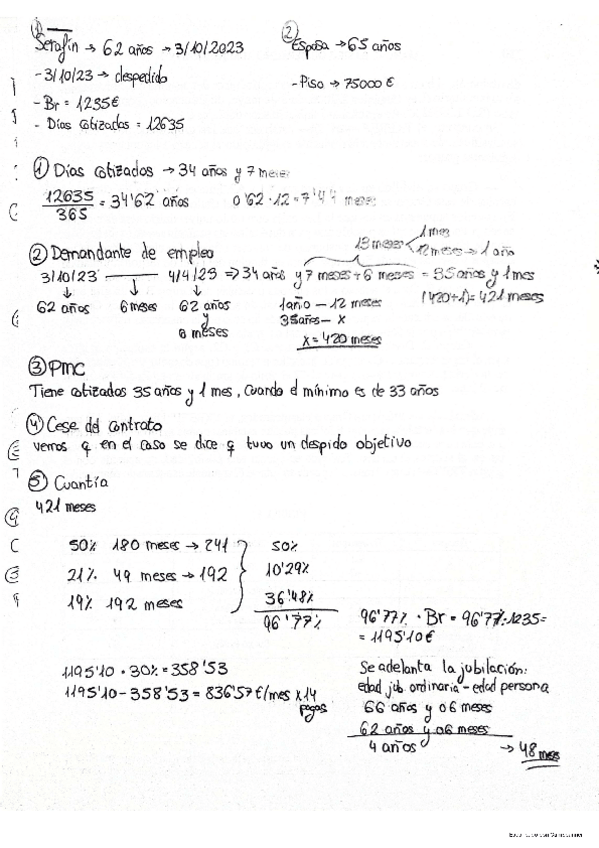 ①
Serafín → 62 años → 3/10/2023
- 3/10/23 → despedido
- Br = 1235€
- Días cotizados = 12635
②
Esposa → 65 años
- Piso → 75000 €
① Días cotizados → 34 años y 7 meses
12635 / 365 = 34'62 años 0'62 · 12 = 7'44 meses
② Demandante de empleo
13 meses 1 mes
12 meses → 1 año
3/10/23 —— 4/4/23 ⇒ 34 años y 7 meses + 6 meses = 35 años y 1 mes
↓ ↓ ↓
62 años 6 meses 62 años
y
6 meses
1 año – 12 meses
35 años – x
x = 420 meses
(420+1) = 421 meses
③ PMC
Tiene cotizados 35 años y 1 mes, cuando el mínimo es de 33 años
④ Cese del contrato
vemos q en el caso se dice q tuvo un despido objetivo
⑤ Cuantía
421 meses
50% 180 meses → 241
21% 49 meses → 192
19% 192 meses
50%
10'29%
36'48%
96'77%
96'77% · Br = 96'77% · 1235 =
= 1195'10€
1195'10 · 30% = 358'53
1195'10 – 358'53 = 836'57€/mes x 14
pagas
Se adelanta la jubilación:
edad jub. ordinaria – edad persona
66 años y 06 meses
62 años y 06 meses
4 años → 48 meses